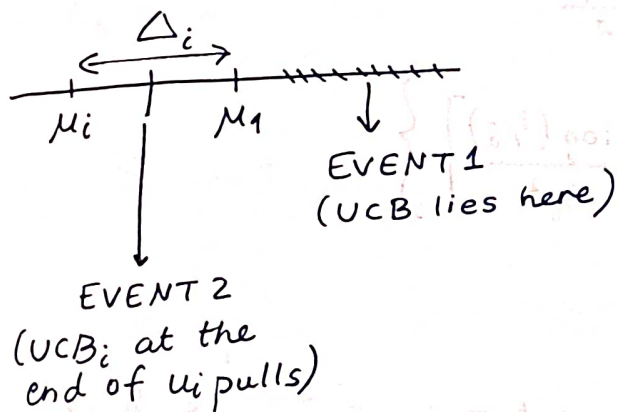 Δi
μi
μ1
EVENT 1
(UCB lies here)
EVENT 2
(UCBi at the
end of ui pulls)